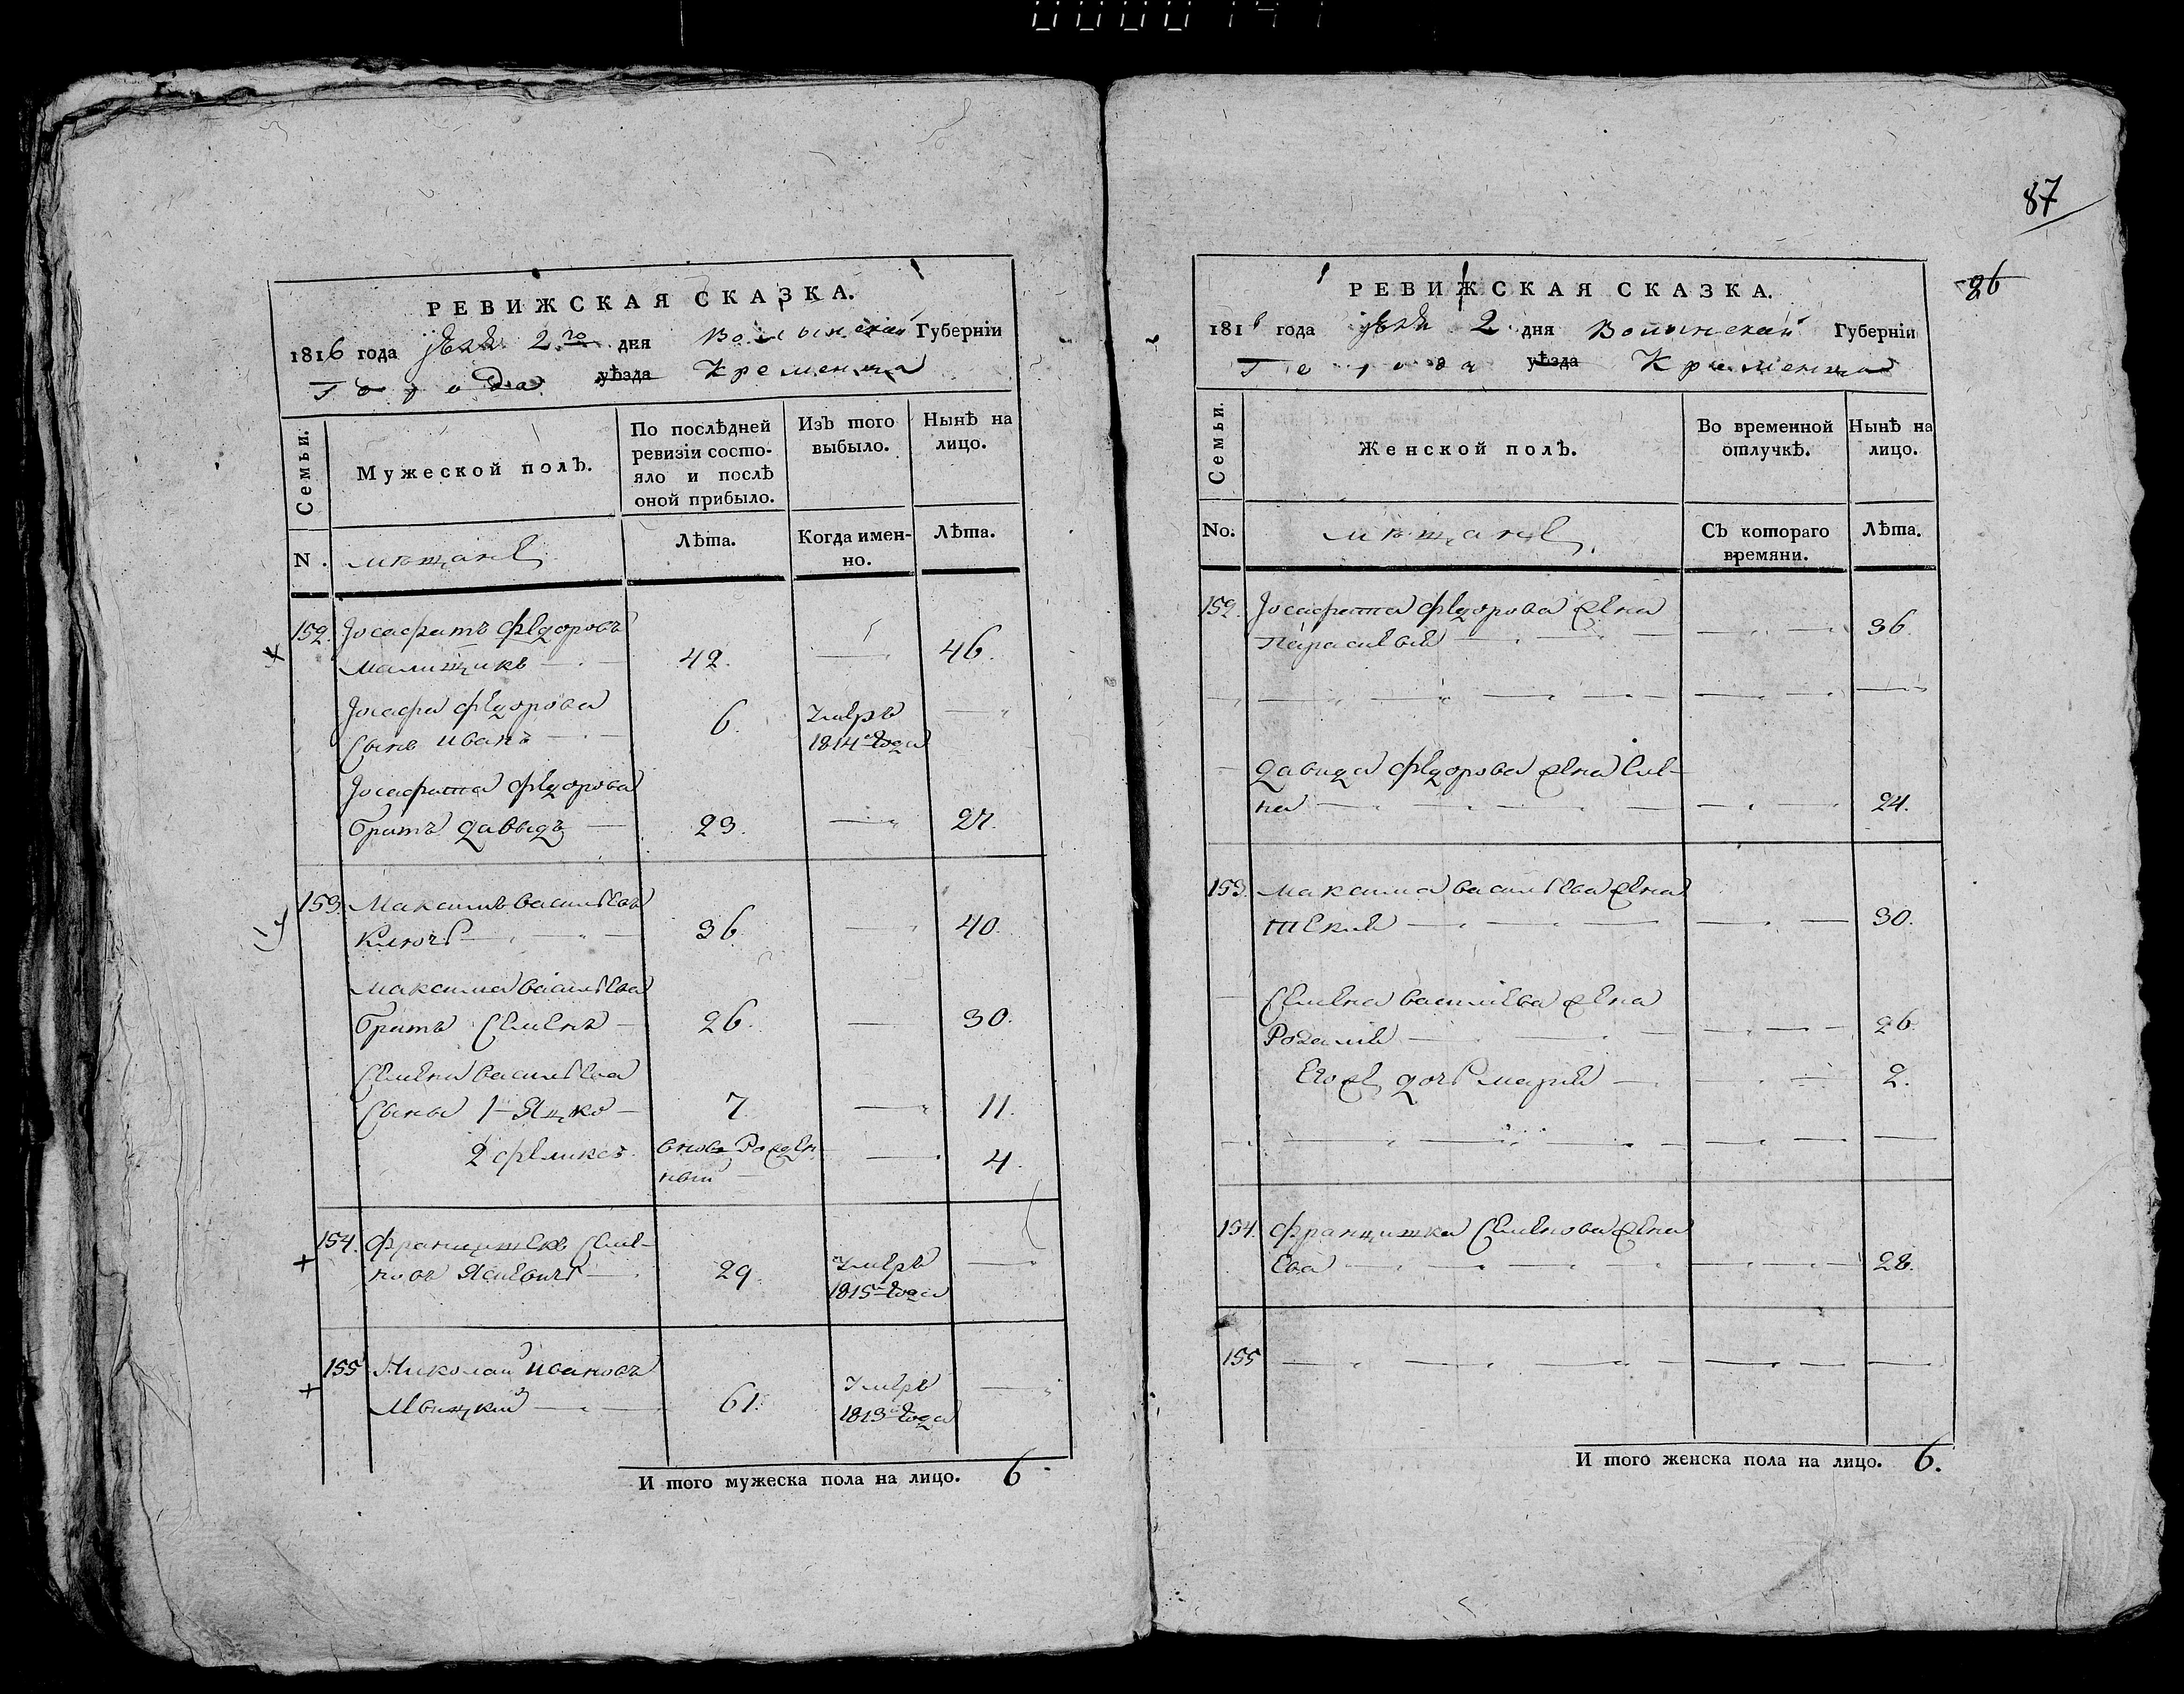 87
26
РЕВИЖСКАЯ СКАЗКА.
1816 года 2го дня Волынской Губернїи
Города уѣзда Кременца
Семьи.
Мужеской полъ.
По послѣдней ревизїи состо-
яло и послѣ
оной прибыло.
Изъ того
выбыло.
Нынѣ на
лицо.
N.
мѣщане
Лѣта.
Когда имен-
но.
Лѣта.
152. Іосафатъ Федоровъ
42. 46.
Іосафа Федорова
Сынъ Иванъ 6. Умеръ
1814 года
Іосафата Федорова
братъ Давыдъ 23. 27.
153. Максимъ Васильевъ
Ключь 36 40.
Максима Васильева
братъ Семенъ 26. 30.
Семена Васильева
Сыны 1 Яцко 7. 11.
2 Феликсъ вновь Рожден-
ный 4.
154. Францишекъ Семе-
новъ 29 Умеръ
1815 года
155 Николай Ивановъ
61. Умеръ
1813 года
И того мужеска пола на лицо. 6.
РЕВИЖСКАЯ СКАЗКА.
1816 года 2. дня Волынской Губернїи
Города уѣзда Кременца
Семьи.
Женской полъ.
Во временной
отлучкѣ.
Нынѣ на
лицо.
No.
мѣщане
Съ котораго
времяни.
Лѣта.
152. Іосафата Федорова жена
36.
Давида Федорова жена
24.
153. Максима Васильева жена
30.
Семена Васильева жена
Розалия 26.
Его же дочь Мария 2.
154. Францишка Семенова жена
Ева 28.
155
И того женска пола на лицо. 6.